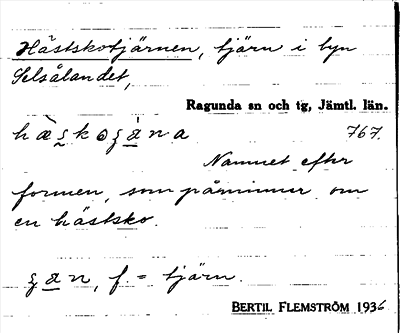 Hästskotjärnen, tjärn i byn
Selsålandet,
Ragunda sn och tg, Jämtl. län.
767.
Namnet efter
formen, som påminner om
en hästsko.
f. = tjärn.
BERTIL FLEMSTRÖM 1936